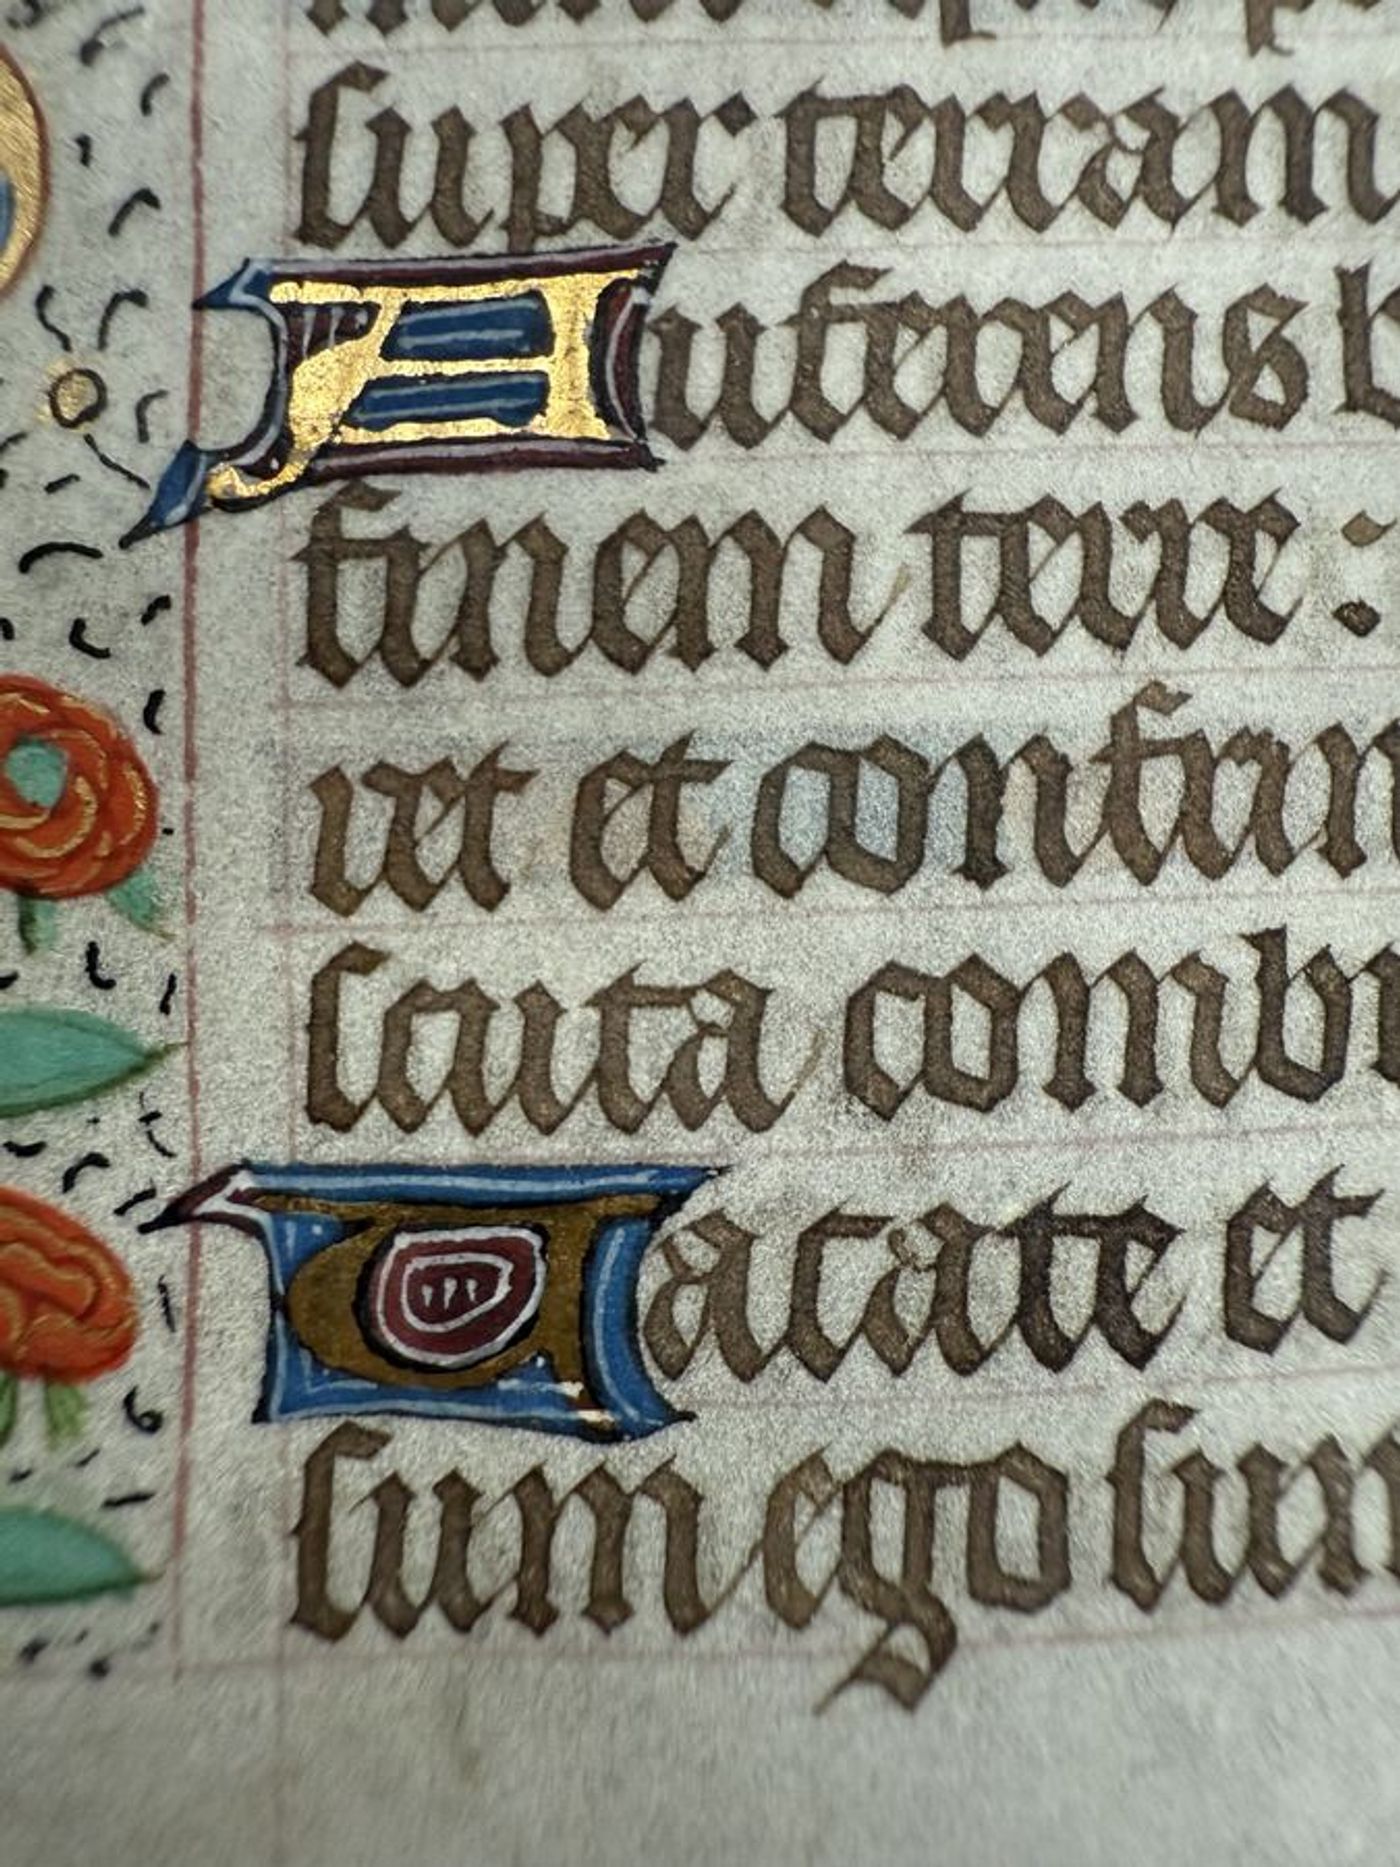 super terram
Auferens b
finem terre :
ret et confrin
scuta combu
Vacate et
sum ego sum